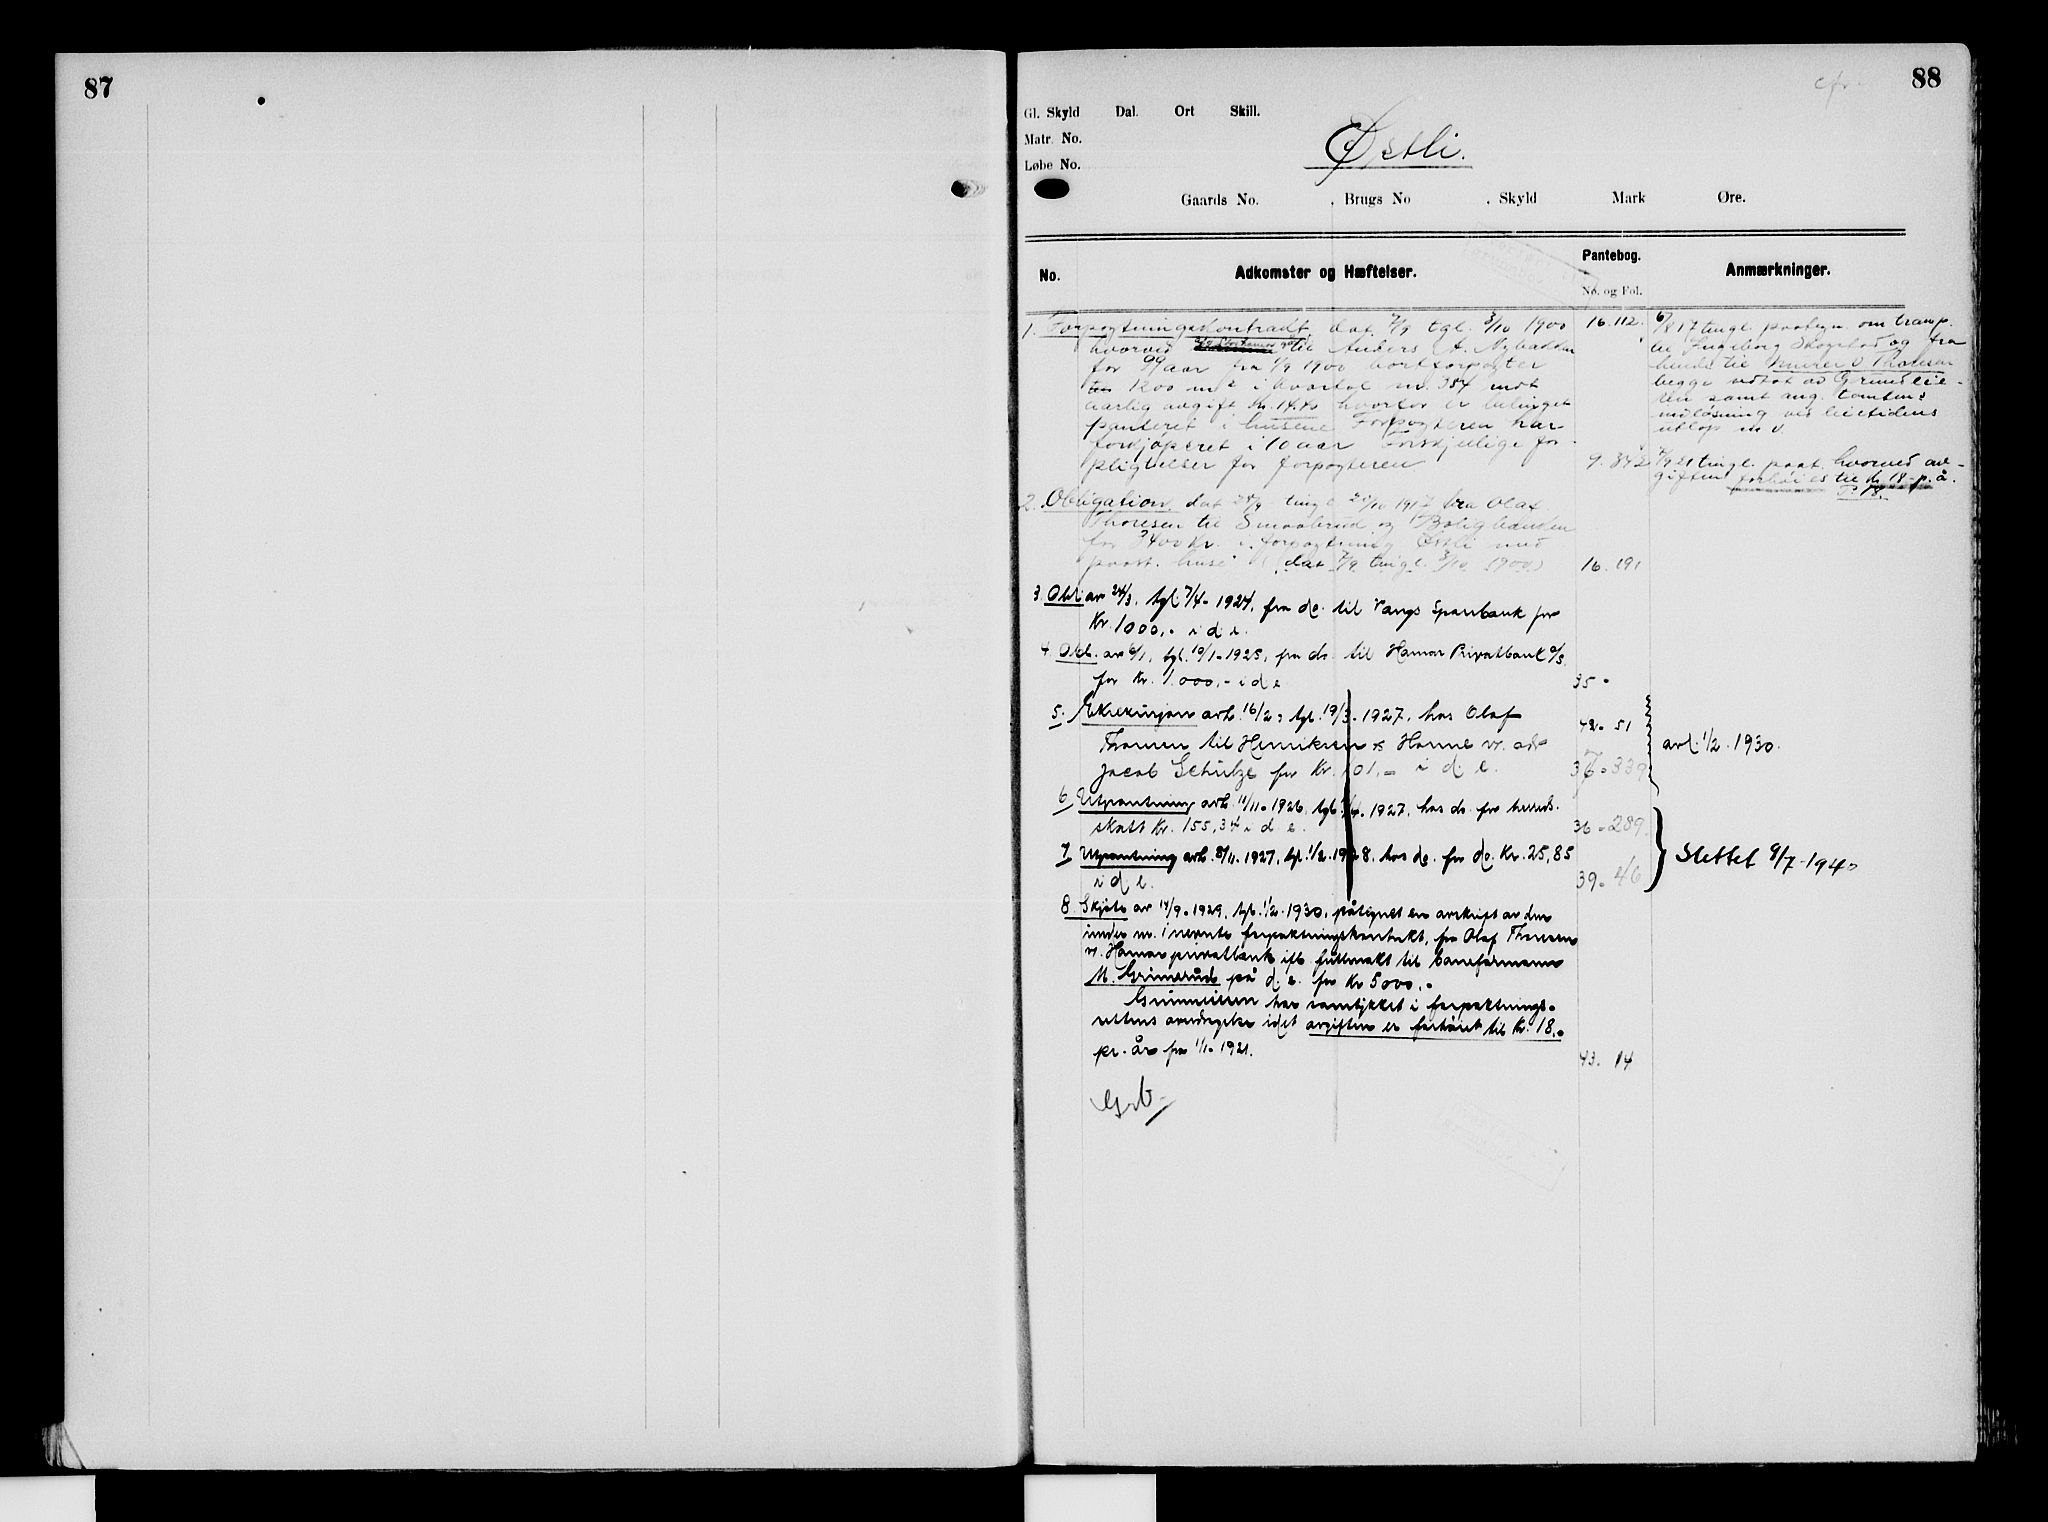 87
88
cfr.
Gl. Skyld Dal. Ort Skill.
Matr. No.
Løbe No.
Østli.
Gaards No. , Brugs No . Skyld Mark Øre.
No. Adkomster og Hæftelser. Pantebog. No. og Fol. Anmærkninger.
1. Forpogtningskontrakt dat. 7/9 tgl. 3/10 1900 16.112.
hvorved til Anders A. Nybakken
for 99 aar fra 1/9 1900 bortforpogter
1200 m² i kvartal nr. 354 mot
aarlig avgift Kr. 14.40 hvorfor er betinget
panteret i husene Forpogteren har
forkjøpsret i 10 aar Forskjellige for-
pligtelser for forpogteren 9. 342
6/8 17 tingl. paategn. om transp.
til Ingeborg Skogstad og fra
hende til murer O Thoresen
begge vedtat av Grundeie-
ren samt ang. tomtens
indløsning ved leietidens
utløp m v.
7/9 21 tingl. paat. hvorved av-
giften forhøies til kr 18 - p. å.
2. Obligation dat 28/9 tingl 20/10 1917 fra Olaf
Thoresen til Smaabruk og Boligbanken
for 3400 Kr. i forpogtning Østli med
paast. huse (dat 7/9 tingl. 3/10 1900) 16. 191
3. Obl. av 24/3, tgl. 7/4 - 1924, fra ds. til Vangs Sparebank for
Kr. 1000,- i d. e.
4. Obl. av 6/1, tgl. 19/1 - 1925, fra ds. til Hamar Privatbank A/S
for Kr. 1.000,- i d e 35 -
5. Eksekusjon avh. 16/2, tgl. 19/3 - 1927, hos Olaf 42 - 51
Thoresen til Henriksen & Hanne v. adv
Jacob Schulze for Kr. 101,- i d. e. 36 - 339
avl. 1/2 - 1930.
6. Utpantning avh. 11/11 - 1926, tgl. 1927, hos ds. for herreds-
skatt Kr. 155,34 i d e. 36 - 289
7. Utpantning avh. 8/11 - 1927, tgl. 1/2 - 1928, hos ds. for do. Kr. 25,85
i d. e. 39 - 46
Slettet 9/7 - 1940
8. Skjøte av 14/9 - 1929, tgl. 1/2 - 1930, påtegnet en avskrift av den
under nr. 1 nevnte forpaktningskontrakt, fra Olaf Thoresen
v. Hamar privatbank ifl. fullmakt til baneformann
M. Grimerud på d. e. for Kr 5000,-
Grunneieren har samtykket i forpaktnings-
rettens overdragelse idet avgiften er forhøiet til Kr. 18,-
pr. år fra 1/1 - 1921. 43. 14